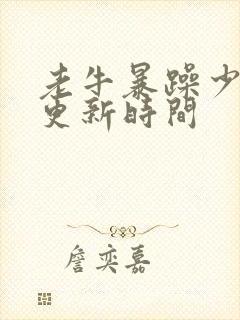 老牛暴躁少
更新時間
詹奕嘉